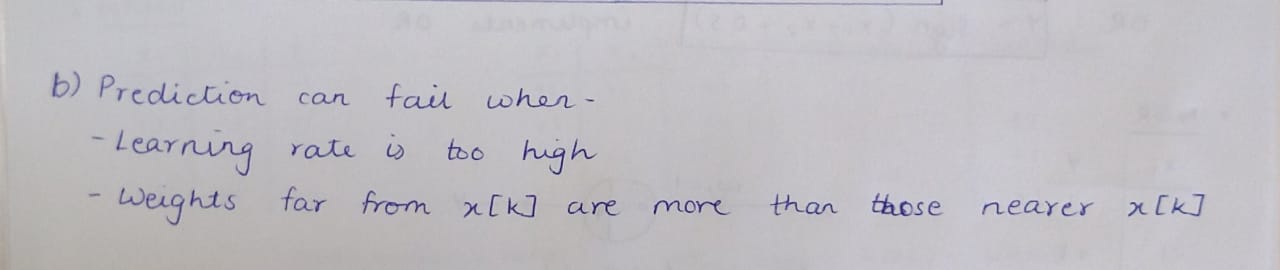 b) Prediction can fail when -
- Learning rate is too high
- Weights far from x[k] are more than those nearer x[k]